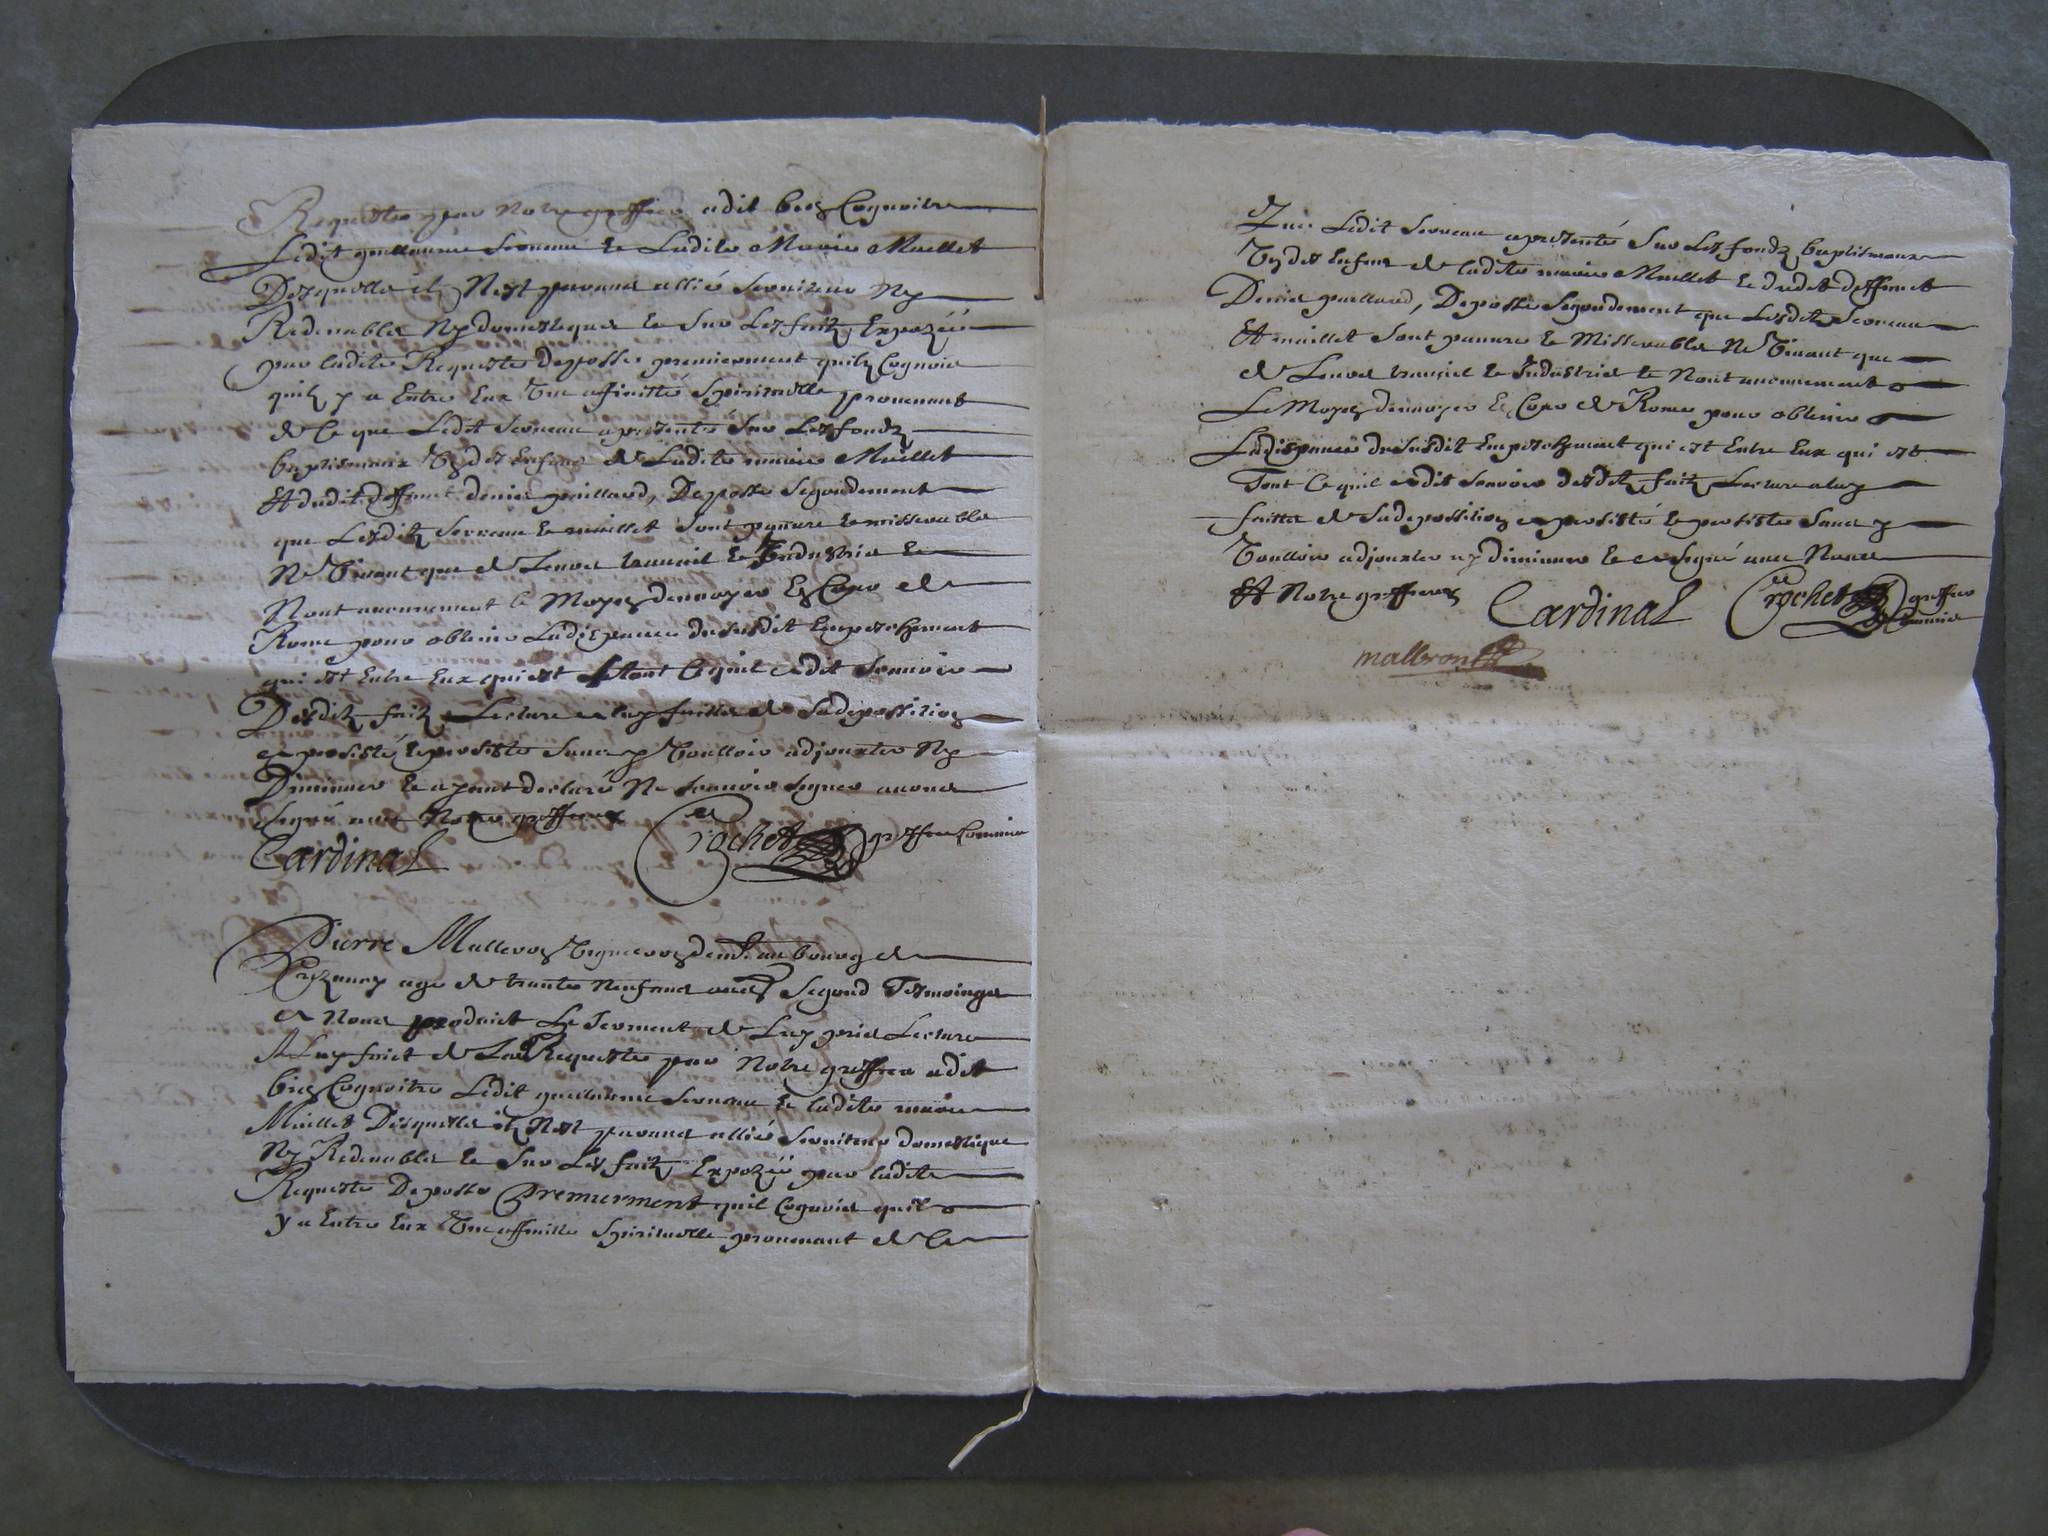 Requeste par Notre greffier a dit bien Cognoitre
Ledit guillaume Serveau et Ladite Marie Maillet
Desquelles il Nest parans allié serviteur Ny
Redevables Ny domesteques et Sur Les faitz Expozéé
par ladite Requeste Depposse premierement quilz Cognoit
quilz y a Entre Eux Une affinitté Spirituelle provenant
de Ce que Ledit Serveau a presenté Sur Les fondz
baptismaux Un des Enfans de Ladite marie Maillet
Et dudit deffunct denis paillard, Depposse Segondement
que Lesditz Serveau et maillet sont pauvre et misserable
Ne Vivant que de Leurs travail et Industrie et
Nont aucunement le Moyen denvoyer En Cour de
Rome pour obtenir La dispance du susdit Empeschement
qui est Entre Eux qui est tout Ce quil a dit Scavoir
Desditz faitz Lecture a luy faitte de Sa depossition
a persisté et persiste Sans y Voulloir adjouxter Ny
Diminuer et ayant declaré Ne scavoir Signer avons
Signé avec Notre greffier
Cardinal Crochet greffier Commis
Pierre Malleron Vigneron demt au bourg de
Crezancy agé de trante Neuf ans Segond Tesmoings
a Nous produict Le Serment de Luy pris Lecture
A Luy faict de La Requeste par Notre greffier a dit
bien Cognoitre Ledit guillaume Serveau et ladite marie
Maillet Desquelles il Nest parans allié Serviteur domestique
Ny Redevables et Sur Les faitz Expozéé par ladite
Requeste Deposse premierment quil Cognoit quil
y a Entre Eux Une affinitté Spirituelle provenant de Ce
Que Ledit Serveau a presenté Sur Les fondz baptismaux
Un des Enfans de ladite marie Maillet et dudit deffunct
Denis paillard, Depposse Segondement que Lesditz Serveau
Et maillet Sont pauvre et Misserables Ne Vivant que
de Leurs travail et Industrie et Nont aucunement
Le Moyen denvoyer En Cour de Rome pour obtenir
La dispance du susdit Empeschement qui est Entre Eux qui est
Tout Ce quil a dit Scavoir desditz faitz Lecture a luy
faitte de Sa depossition a persisté et persiste Sans y
Voulloir adjouxter ny diminuer et a Signé avec Nous
Et Notre greffier Cardinal Crochet greffier commis
malleron